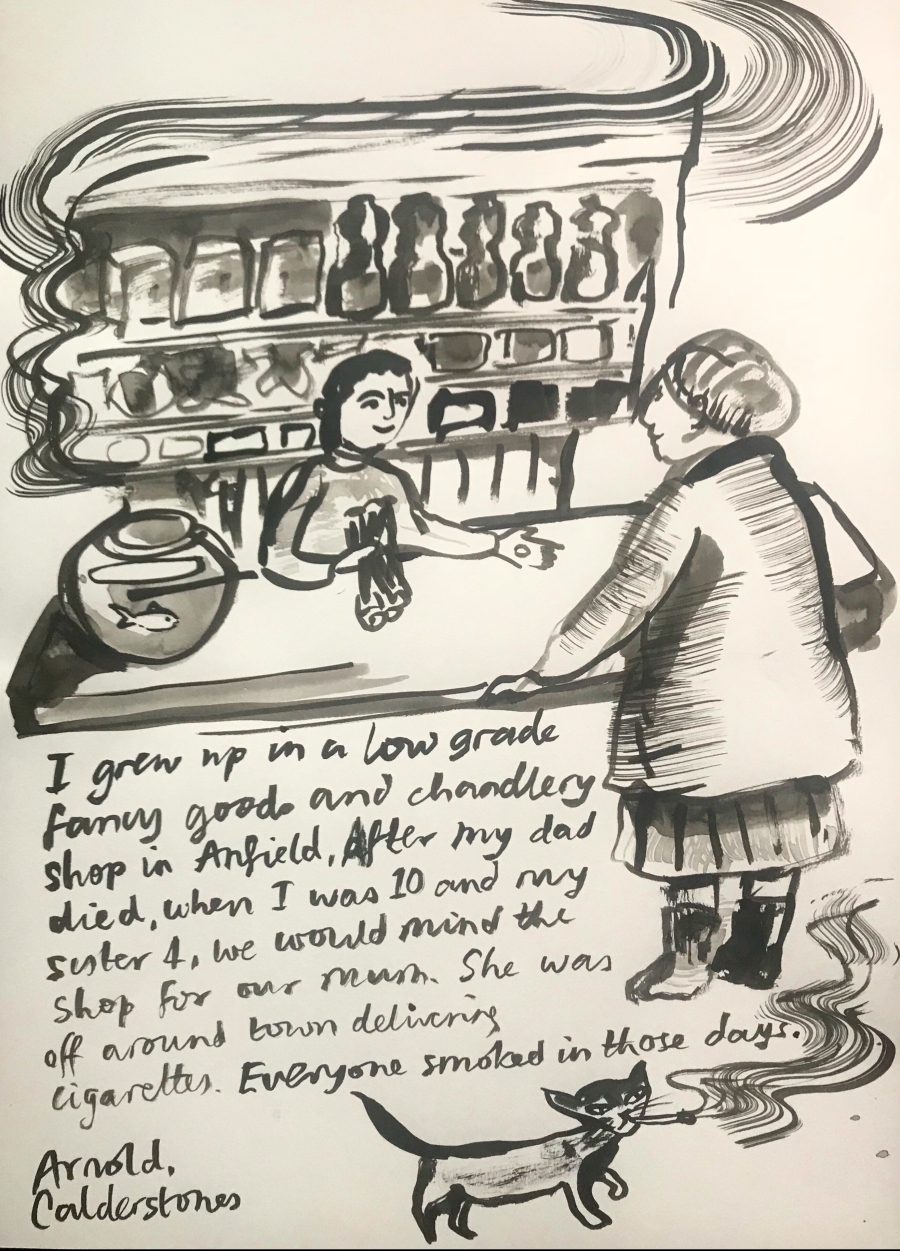 I grew up in a low grade
fancy goods and chandlery
shop in Anfield, After my dad
died, when I was 10 and my
sister 4, we would mind the
shop for our mum. She was
off around town delivering
cigarettes. Everyone smoked in those days.
Arnold,
Calderstones